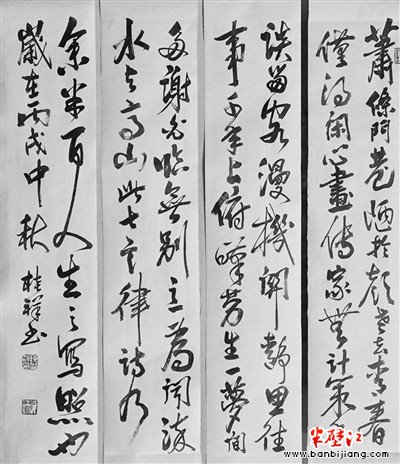 蕭條門巷陋於顏老去青春
僅得閑心畫傳家無計策
談留客漫機關靜思往
事千年上俯嘆勞生一夢間
多謝光臨無別意為聞流
水与高山此七言律詩乃
余半百人生之寫照也
歲在丙戌中秋 桂祥书
半壁江
www.banbijiang.com